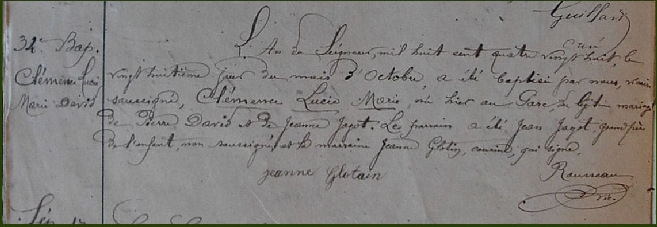 Guilhard
34e Bap.
Clémence Lucie
Marie David
L'An du Seigneur, mil huit cent quatre vingt huit le
vingt huitième jour du mois d'Octobre a été baptisé par nous, vicaire
soussigné, Clémence Lucie Marie, née hier au légitime mariage
de Pierre David et de Jeanne Jagot. Le parrain a été Jean Jagot, grand père
de l'enfant, non soussigné et la marraine Jeanne Glotin, cousine, qui signe.
Jeanne Glotain
Rousseau